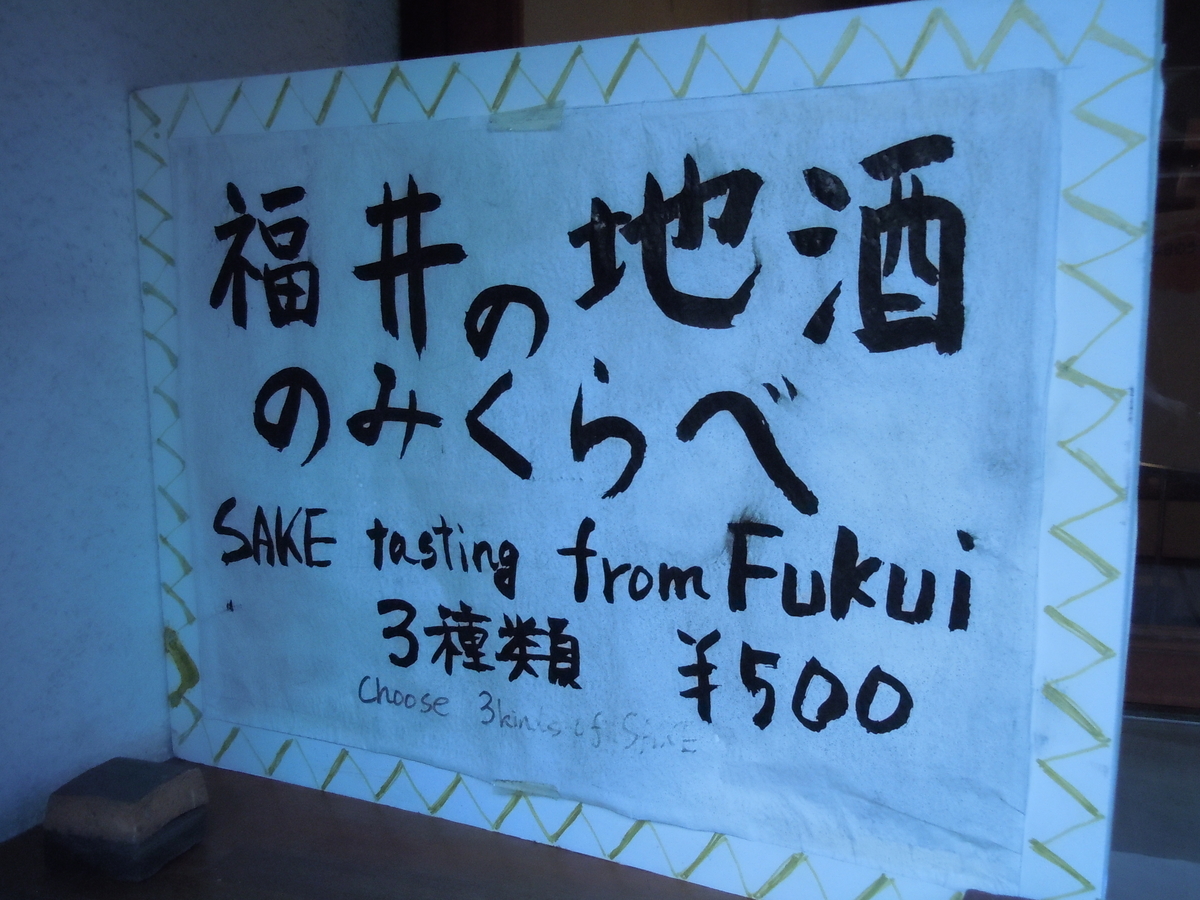 福井の地酒
のみくらべ
SAKE tasting from Fukui
3種類 ¥500
Choose 3kinds of